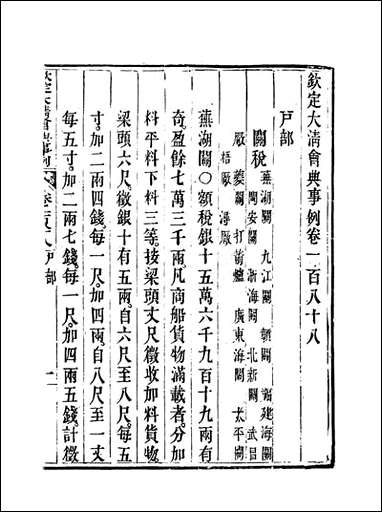 欽定大清會典事例卷一百八十八
戶部
關稅 蕪湖關 九江關 贛關 福建海關
閩安關 浙海關 北新關 武昌
廠 夔關 打箭爐 廣東海關 太平關
梧廠 潯廠
蕪湖關○額稅銀十五萬六千九百十九兩有
奇盈餘七萬三千兩凡商船貨物滿載者分加
料平料下料三等按梁頭丈尺徵收加料貨物
梁頭六尺徵銀十有五兩自六尺至八尺每五
寸加二兩四錢每一尺加四兩自八尺至一丈
每五寸加二兩七錢每一尺加四兩五錢計徵
戶部